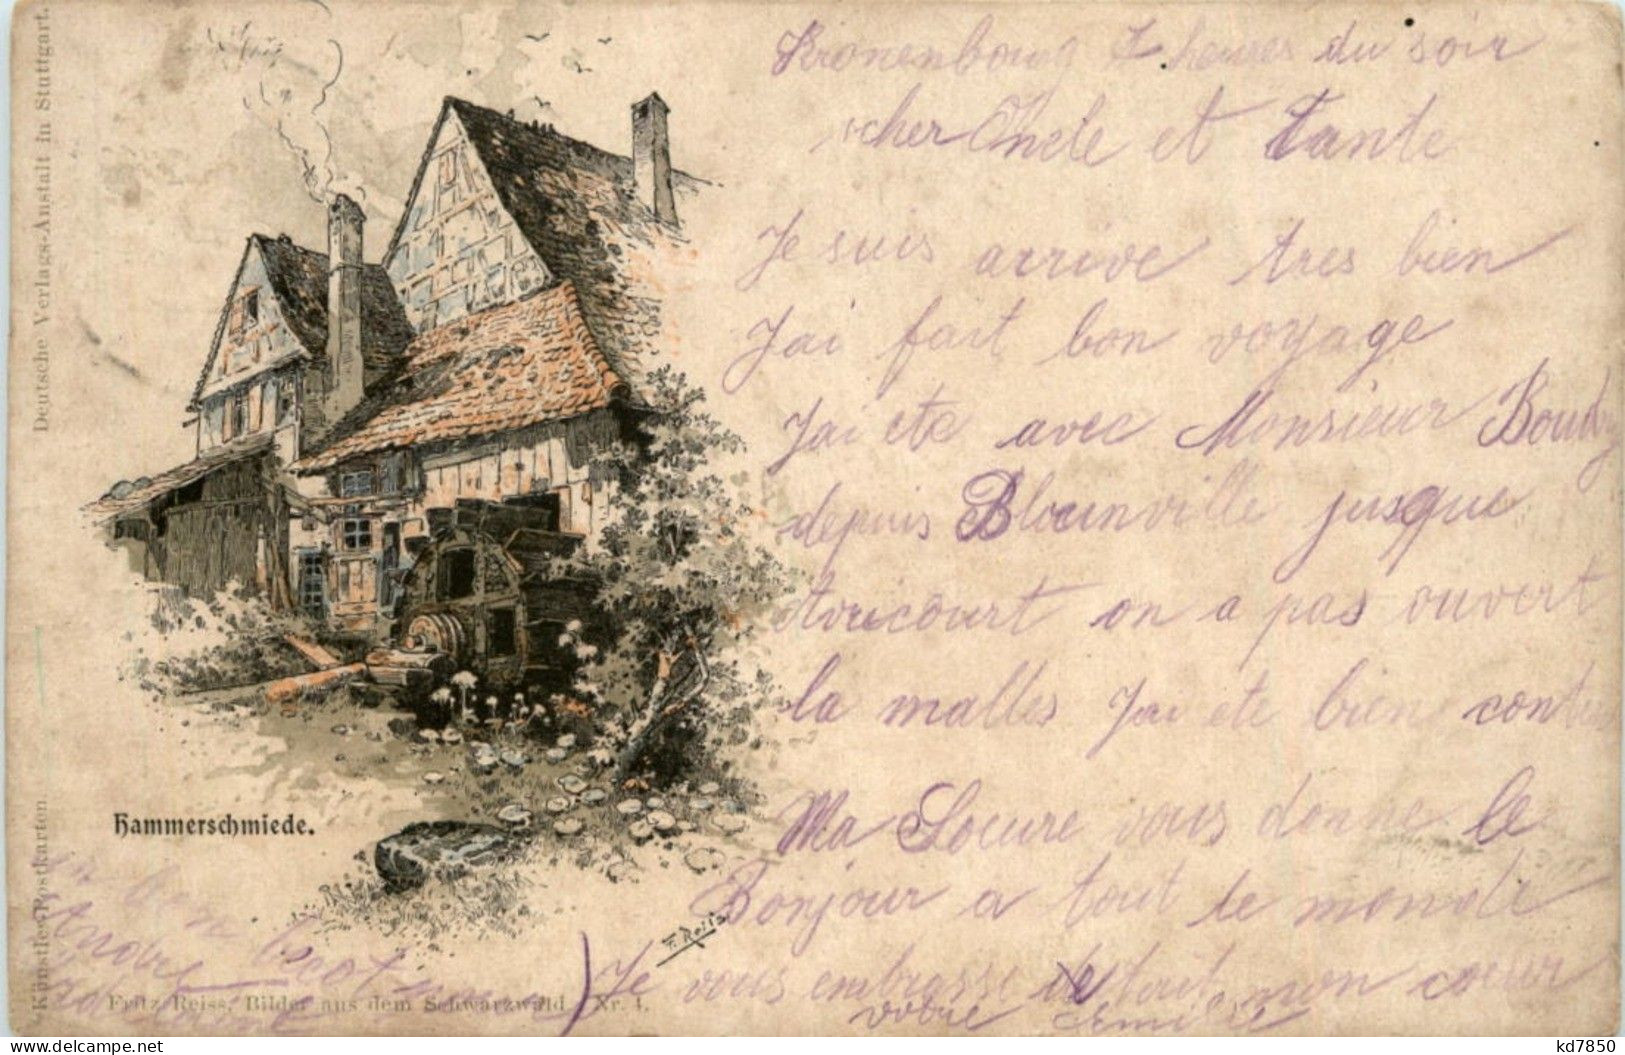 Deutsche Verlags-Anstalt in Stuttgart.
Künstler-Postkarten.
Hammerschmiede.
F. Reiss
Fritz Reiss, Bilder aus dem Schwarzwald Nr. 4.
Kronenbourg 7 heures du soir
cher Oncle et Tante
Je suis arrive tres bien
Jai fait bon voyage
Jai ete avec Monsieur Boudry
depuis jusque
on a pas ouvert
la malles Jai ete bien
Ma Soeure vous donne le
Bonjour a tout le monde
Je vous embrasse tout mon coeur
votre
bon becot
kd7850